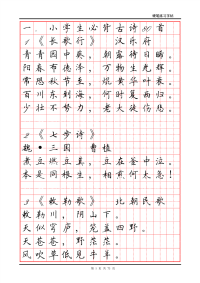 硬笔练习字帖
一、小学生必背古诗 首
1、《长歌行》 汉乐府
青青园中葵，朝露待日晞。
阳春布德泽，万物生光辉。
常恐秋节至，焜黄华叶衰。
百川东到海，何时复西归。
少壮不努力，老大徒伤悲。
2、《七步诗》
魏·三国 曹植
煮豆燃豆萁，豆在釜中泣。
本是同根生，相煎何太急！
3、《敕勒歌》 北朝民歌
敕勒川，阴山下。
天似穹庐，笼盖四野。
天苍苍，野茫茫。
风吹草低见牛羊。